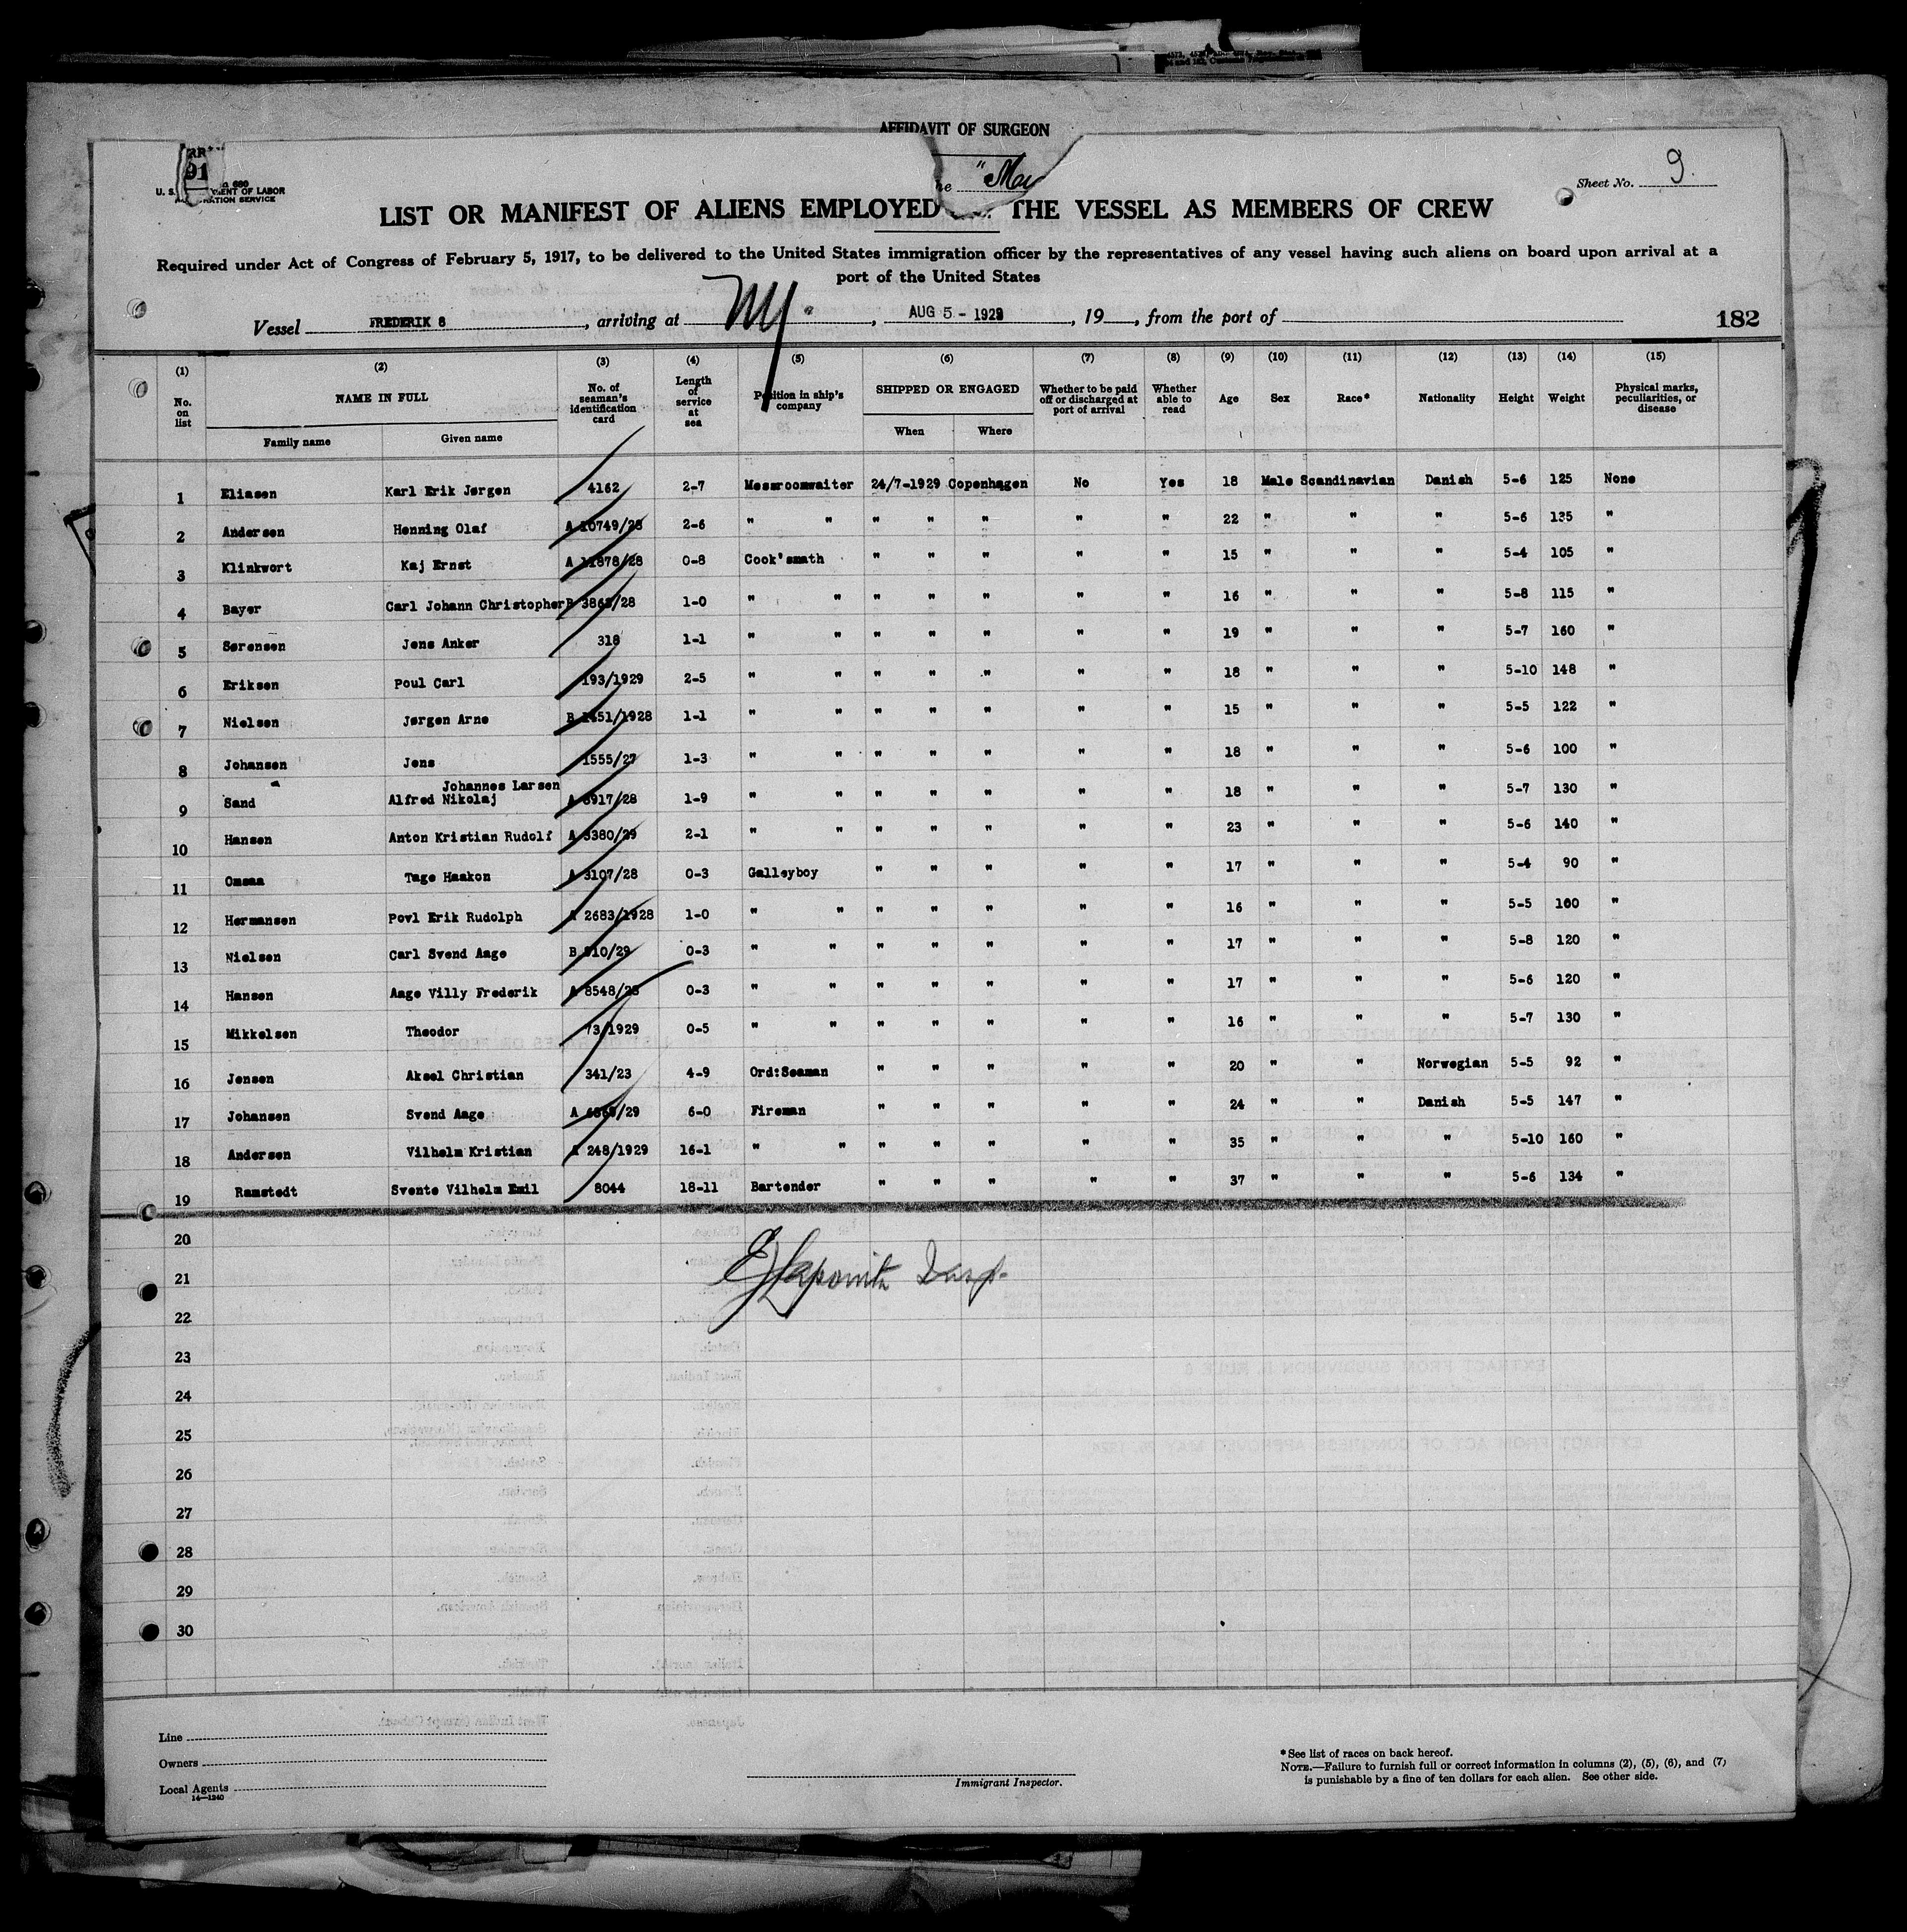 AFFIDAVIT OF SURGEON
91
U. S. DEPARTMENT OF LABOR
IMMIGRATION SERVICE
Sheet No. 9.
LIST OR MANIFEST OF ALIENS EMPLOYED THE VESSEL AS MEMBERS OF CREW
Required under Act of Congress of February 5, 1917, to be delivered to the United States immigration officer by the representatives of any vessel having such aliens on board upon arrival at a
port of the United States
Vessel FREDERIK 8, arriving at NY., AUG 5 - 1929, 19 , from the port of
182
(1) (2) (3) (4) (5) (6) (7) (8) (9) (10) (11) (12) (13) (14) (15)
No. on list NAME IN FULL No. of seaman's identification card Length of service at sea Position in ship's company SHIPPED OR ENGAGED Whether to be paid off or discharged at port of arrival Whether able to read Age Sex Race* Nationality Height Weight Physical marks, peculiarities, or disease
Family name Given name When Where
1 Eliasen Karl Erik Jørgen 4162 2-7 Messroomwaiter 24/7-1929 Copenhagen No Yes 18 Male Scandinavian Danish 5-6 125 None
2 Andersen Henning Olaf A 10749/28 2-6 " " " " " " " 22 " " " 5-6 135 "
3 Klinkwort Kaj Ernst A 11878/28 0-8 Cook'smath " " " " " 15 " " " 5-4 105 "
4 Bayer Carl Johann Christopher B 3868/28 1-0 " " " " " " " 16 " " " 5-8 115 "
5 Sørensen Jens Anker 318 1-1 " " " " " " " 19 " " " 5-7 160 "
6 Eriksen Poul Carl 193/1929 2-5 " " " " " " " 18 " " " 5-10 148 "
7 Nielsen Jørgen Arne B 1451/1928 1-1 " " " " " " " 15 " " " 5-5 122 "
8 Johansen Jens 1555/27 1-3 " " " " " " " 18 " " " 5-6 100 "
Johannes Larsen
9 Sand Alfred Nikolaj A 6917/28 1-9 " " " " " " " 18 " " " 5-7 130 "
10 Hansen Anton Kristian Rudolf A 3380/29 2-1 " " " " " " " 23 " " " 5-6 140 "
11 Omsaa Tage Haakon A 3107/28 0-3 Galleyboy " " " " " 17 " " " 5-4 90 "
12 Hermansen Povl Erik Rudolph A 2683/1928 1-0 " " " " " " " 16 " " " 5-5 100 "
13 Nielsen Carl Svend Aage B 910/29 0-3 " " " " " " " 17 " " " 5-8 120 "
14 Hansen Aage Villy Frederik A 8548/28 0-3 " " " " " " " 17 " " " 5-6 120 "
15 Mikkelsen Theodor 73/1929 0-5 " " " " " " " 16 " " " 5-7 130 "
16 Jensen Aksel Christian 341/23 4-9 Ord:Seaman " " " " " 20 " " Norwegian 5-5 92 "
17 Johansen Svend Aage A 29 6-0 Fireman " " " " " 24 " " Danish 5-5 147 "
18 Andersen Vilhelm Kristian A 248/1929 16-1 " " " " " " " 35 " " " 5-10 160 "
19 Ramstedt Svente Vilhelm Emil 8044 18-11 Bartender " " " " " 37 " " " 5-6 134 "
20
21
22
23
24
25
26
27
28
29
30
Line
Owners
Local Agents
14—1240
Immigrant Inspector.
*See list of races on back hereof.
NOTE.—Failure to furnish full or correct information in columns (2), (5), (6), and (7)
is punishable by a fine of ten dollars for each alien. See other side.